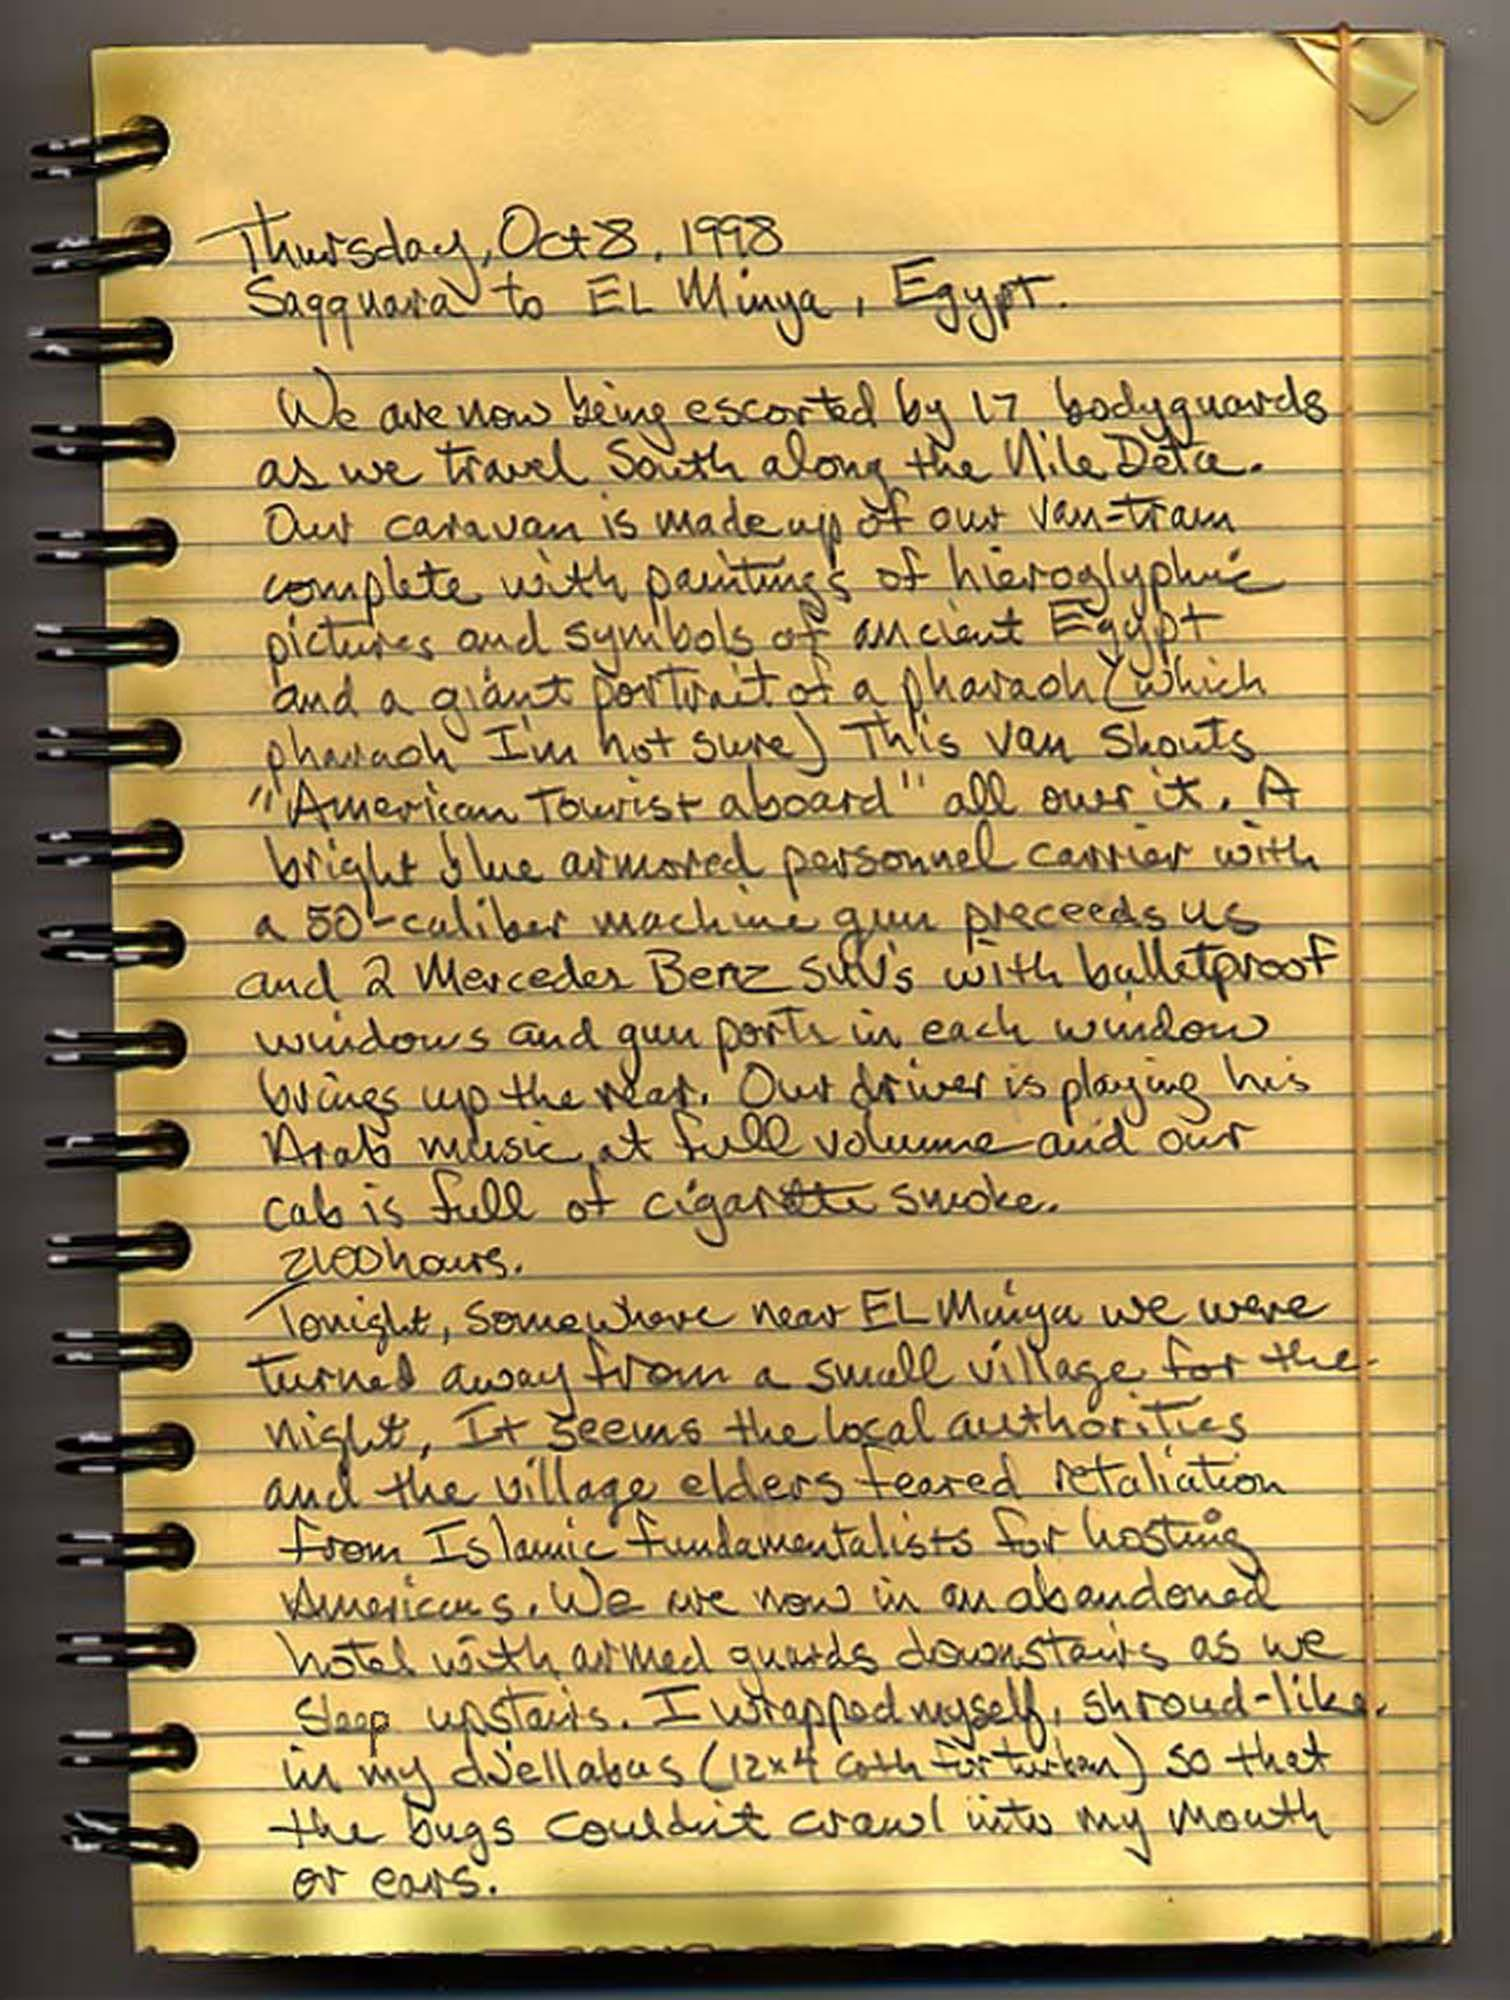 Thursday, Oct 8, 1998
Saqquara to EL Minya, Egypt.
We are now being escorted by 17 bodyguards
as we travel South along the Nile Delta.
Our caravan is made up of our van-tram
complete with paintings of hieroglyphic
pictures and symbols of ancient Egypt
and a giant portrait of a pharaoh (which
pharaoh I'm not sure) This van shouts
"American Tourist aboard" all over it. A
bright blue armored personnel carrier with
a 50-caliber machine gun preceeds us
and 2 Mercedes Benz SUV's with bulletproof
windows and gun ports in each window
brings up the rear. Our driver is playing his
Arab music at full volume and our
cab is full of cigarette smoke.
2100 hours.
Tonight, somewhere near EL Minya we were
turned away from a small village for the
night, It seems the local authorities
and the village elders feared retaliation
from Islamic fundamentalists for hosting
Americans. We are now in an abandoned
hotel with armed guards downstairs as we
sleep upstairs. I wrapped myself, shroud-like,
in my djellabas (12x4 cloth for turban) so that
the bugs couldn't crawl into my mouth
or ears.